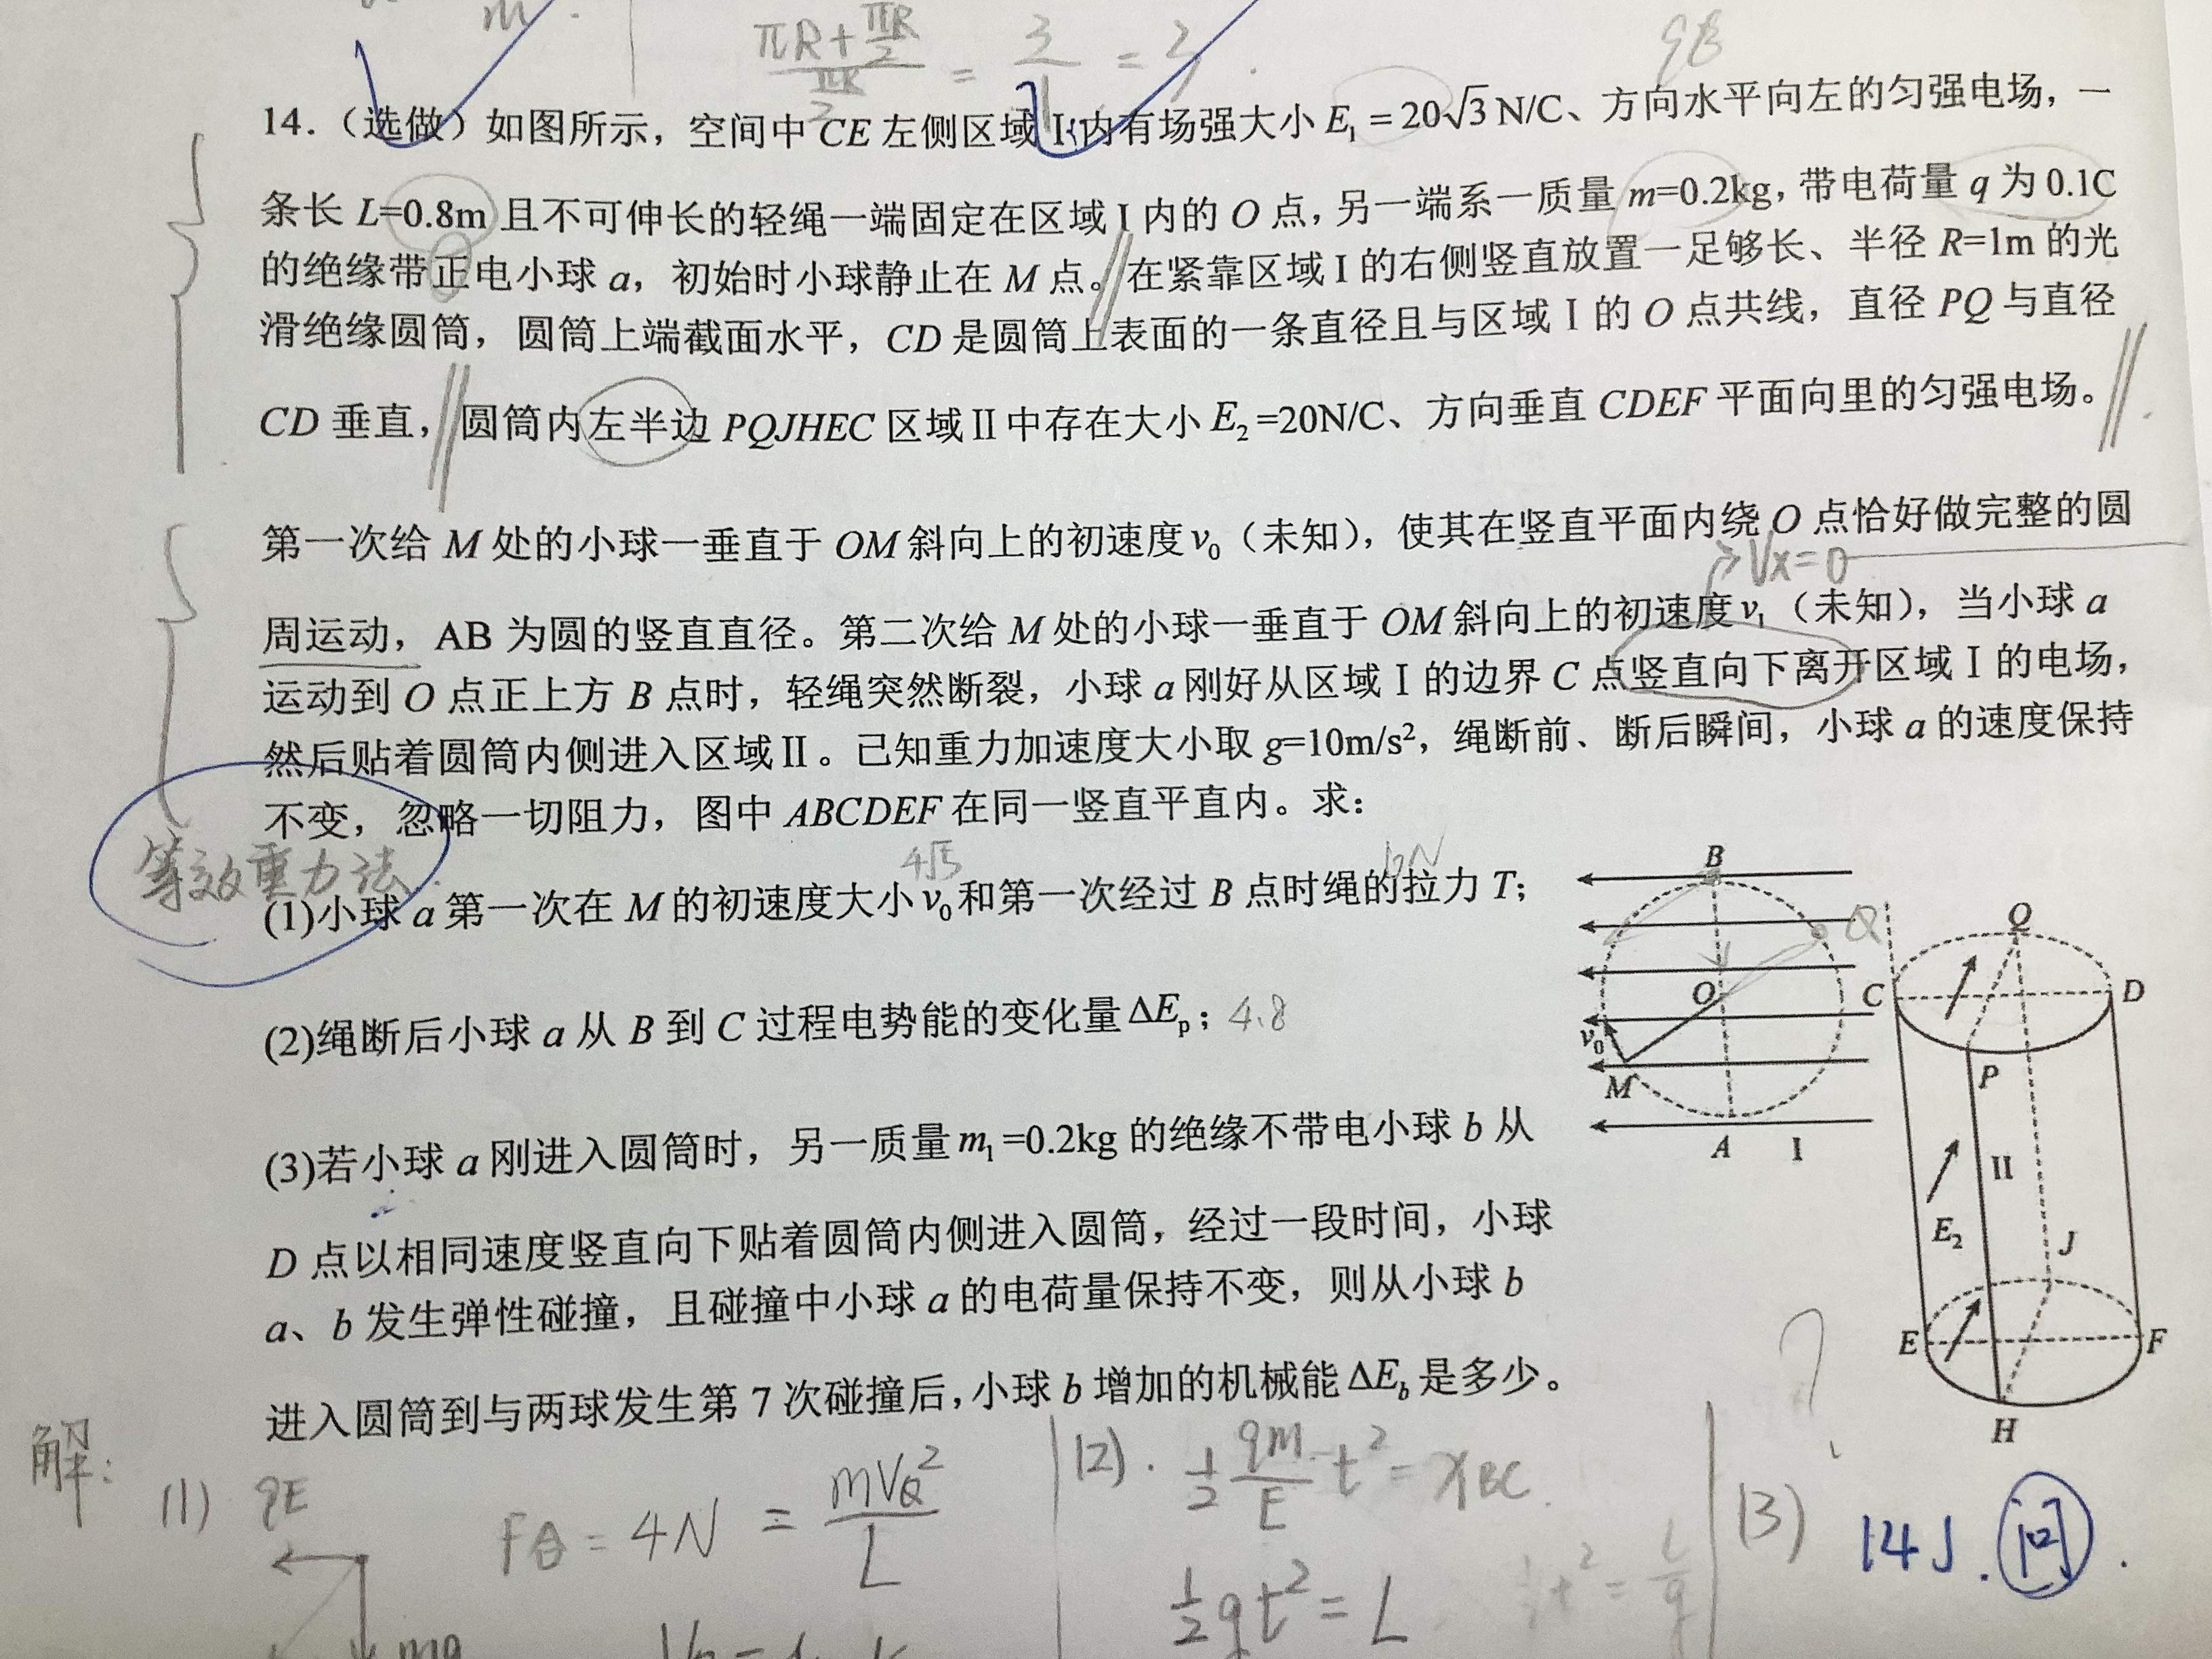 m.
πR+πR/2 / πR/2 = 3/1 = 3.
qE
14.（选做）如图所示，空间中 CE 左侧区域 I 内有场强大小 E₁ = 20√3 N/C、方向水平向左的匀强电场，一
条长 L=0.8m 且不可伸长的轻绳一端固定在区域 I 内的 O 点，另一端系一质量 m=0.2kg，带电荷量 q 为 0.1C
的绝缘带正电小球 a，初始时小球静止在 M 点。在紧靠区域 I 的右侧竖直放置一足够长、半径 R=1m 的光
滑绝缘圆筒，圆筒上端截面水平，CD 是圆筒上表面的一条直径且与区域 I 的 O 点共线，直径 PQ 与直径
CD 垂直，圆筒内左半边 PQJHEC 区域 II 中存在大小 E₂=20N/C、方向垂直 CDEF 平面向里的匀强电场。
第一次给 M 处的小球一垂直于 OM 斜向上的初速度 v₀（未知），使其在竖直平面内绕 O 点恰好做完整的圆
Vx=0
周运动，AB 为圆的竖直直径。第二次给 M 处的小球一垂直于 OM 斜向上的初速度 v₁（未知），当小球 a
运动到 O 点正上方 B 点时，轻绳突然断裂，小球 a 刚好从区域 I 的边界 C 点竖直向下离开区域 I 的电场，
然后贴着圆筒内侧进入区域 II。己知重力加速度大小取 g=10m/s²，绳断前、断后瞬间，小球 a 的速度保持
不变，忽略一切阻力，图中 ABCDEF 在同一竖直平直内。求：
等效重力法.
(1)小球 a 第一次在 M 的初速度大小 v₀ 和第一次经过 B 点时绳的拉力 T；
(2)绳断后小球 a 从 B 到 C 过程电势能的变化量 ΔEₚ；4.8
(3)若小球 a 刚进入圆筒时，另一质量 m₁=0.2kg 的绝缘不带电小球 b 从
D 点以相同速度竖直向下贴着圆筒内侧进入圆筒，经过一段时间，小球
a、b 发生弹性碰撞，且碰撞中小球 a 的电荷量保持不变，则从小球 b
进入圆筒到与两球发生第 7 次碰撞后，小球 b 增加的机械能 ΔE_b 是多少。
B
Q
Q
O
C
D
v₀
M
P
A
I
II
E₂
J
E
F
H
解：
(1)
qE
F合 = 4N = mV_Q²/L
mg
(2). 1/2 qm/E t² = x_BC.
1/2 gt² = L
(3) 14J. 问.